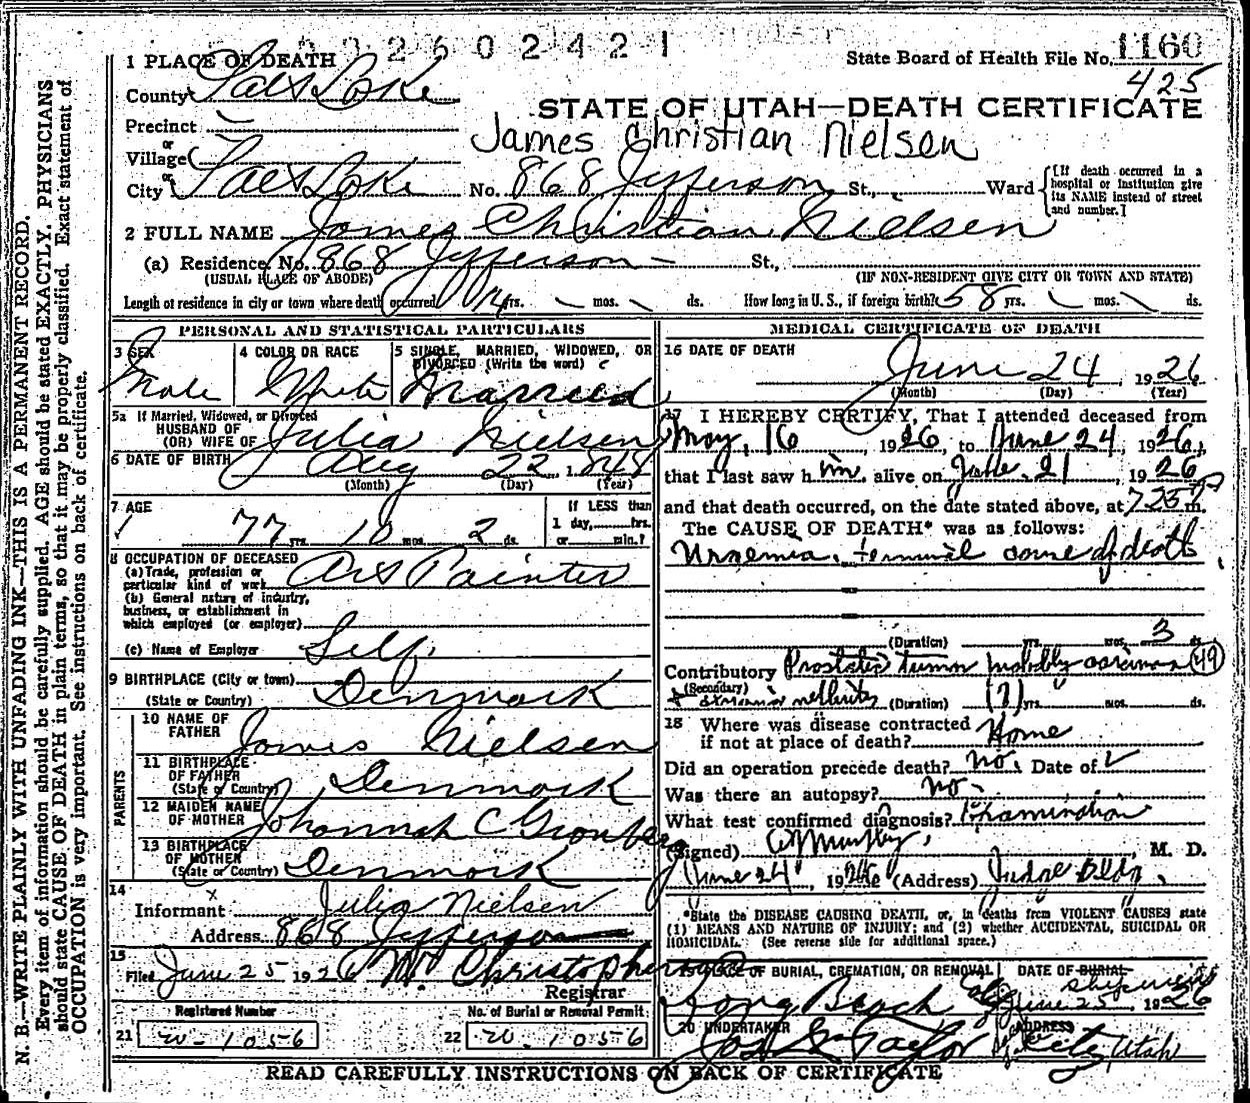 0 0 2 6 0 2 4 2 1
1 PLACE OF DEATH
State Board of Health File No. 1160
425
County Salt Lake
STATE OF UTAH—DEATH CERTIFICATE
Precinct
or
Village
James Christian Nielsen
or
City Salt Lake No. 868 Jefferson St., Ward
[If death occurred in a
hospital or institution give
its NAME instead of street
and number.]
2 FULL NAME James Christian Nielsen
(a) Residence, No. 868 Jefferson St.,
(USUAL PLACE OF ABODE) (IF NON-RESIDENT GIVE CITY OR TOWN AND STATE)
Length of residence in city or town where death occurred 14 yrs. mos. ds. How long in U. S., if foreign birth? 58 yrs. mos. ds.
PERSONAL AND STATISTICAL PARTICULARS
3 SEX
Male
4 COLOR OR RACE
White
5 SINGLE, MARRIED, WIDOWED, OR
DIVORCED (Write the word)
Married
5a If Married, Widowed, or Divorced
HUSBAND OF
(OR) WIFE OF Julia Nielsen
6 DATE OF BIRTH Aug 22 1848
(Month) (Day) (Year)
7 AGE
77 yrs. 10 mos. 2 ds.
If LESS than
1 day, hrs.
or min.?
8 OCCUPATION OF DECEASED
(a) Trade, profession or
particular kind of work Art Painter
(b) General nature of industry,
business, or establishment in
which employed (or employer)
(c) Name of Employer Self
9 BIRTHPLACE (City or town)
(State or Country) Denmark
PARENTS
10 NAME OF
FATHER James Nielsen
11 BIRTHPLACE
OF FATHER
(State or Country) Denmark
12 MAIDEN NAME
OF MOTHER Johannah C Gronberg
13 BIRTHPLACE
OF MOTHER
(State or Country) Denmark
14 x
Informant Julia Nielsen
Address 868 Jefferson
15
Filed June 25 1926
Registrar
Registered Number
21 W-1056
No. of Burial or Removal Permit
22 W. 1056
MEDICAL CERTIFICATE OF DEATH
16 DATE OF DEATH
June 24 1926
(Month) (Day) (Year)
17 I HEREBY CERTIFY, That I attended deceased from
May, 16 1926, to June 24, 1926,
that I last saw him alive on June 21, 1926
and that death occurred, on the date stated above, at 7 25 P m.
The CAUSE OF DEATH* was as follows:
Uraemia. terminal cause of death
(Duration) yrs. mos. 3 ds.
Contributory Prostatic tumor probably carcinoma 49
(Secondary)
nephritis (Duration) (?) yrs. mos. ds.
18 Where was disease contracted
if not at place of death? Home
Did an operation precede death? no. Date of
Was there an autopsy? no-
What test confirmed diagnosis? Examination
(Signed) M. D.
June 24 1926 (Address) Judge Bldg.
*State the DISEASE CAUSING DEATH, or, in deaths from VIOLENT CAUSES state
(1) MEANS AND NATURE OF INJURY; and (2) whether ACCIDENTAL, SUICIDAL OR
HOMICIDAL. (See reverse side for additional space.)
19 PLACE OF BURIAL, CREMATION, OR REMOVAL
Long Beach
DATE OF BURIAL
June 25 1926
20 UNDERTAKER
Taylor
ADDRESS
City, Utah
READ CAREFULLY INSTRUCTIONS ON BACK OF CERTIFICATE
N. B.—WRITE PLAINLY WITH UNFADING INK—THIS IS A PERMANENT RECORD.
Every item of information should be carefully supplied. AGE should be stated EXACTLY. PHYSICIANS
should state CAUSE OF DEATH in plain terms, so that it may be properly classified. Exact statement of
OCCUPATION is very important. See instructions on back of certificate.